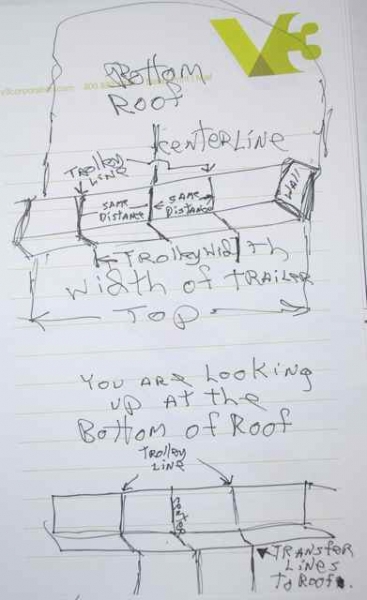 V3
Bottom
Roof
CENTERLINE
Trolley
LINE
SAME
DISTANCE
SAME
DISTANCE
WALL
TrolleyWidth
Width of TRAILER
TOP
YOU ARE LOOKING
UP AT the
Bottom of ROOF
Trolley
LINE
TRANSFER
LINES
TO ROOF.